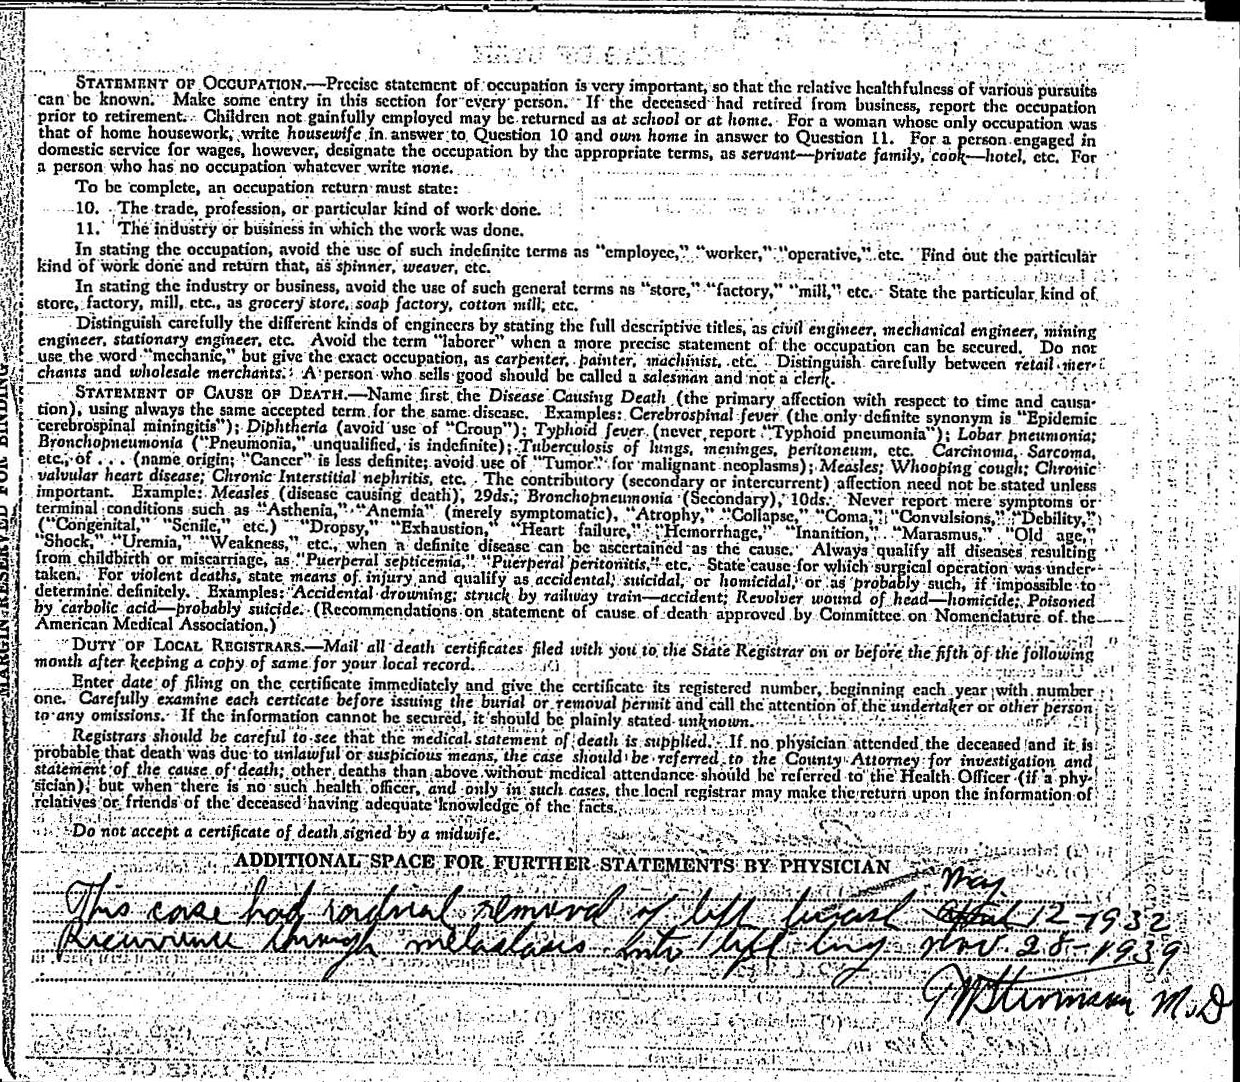 STATEMENT OF OCCUPATION.—Precise statement of occupation is very important, so that the relative healthfulness of various pursuits
can be known. Make some entry in this section for every person. If the deceased had retired from business, report the occupation
prior to retirement. Children not gainfully employed may be returned as at school or at home. For a woman whose only occupation was
that of home housework, write housewife in answer to Question 10 and own home in answer to Question 11. For a person engaged in
domestic service for wages, however, designate the occupation by the appropriate terms, as servant—private family, cook—hotel, etc. For
a person who has no occupation whatever write none.
To be complete, an occupation return must state:
10. The trade, profession, or particular kind of work done.
11. The industry or business in which the work was done.
In stating the occupation, avoid the use of such indefinite terms as "employee," "worker," "operative," etc. Find out the particular
kind of work done and return that, as spinner, weaver, etc.
In stating the industry or business, avoid the use of such general terms as "store," "factory," "mill," etc. State the particular kind of
store, factory, mill, etc., as grocery store, soap factory, cotton mill, etc.
Distinguish carefully the different kinds of engineers by stating the full descriptive titles, as civil engineer, mechanical engineer, mining
engineer, stationary engineer, etc. Avoid the term "laborer" when a more precise statement of the occupation can be secured. Do not
use the word "mechanic," but give the exact occupation, as carpenter, painter, machinist, etc. Distinguish carefully between retail mer-
chants and wholesale merchants. A person who sells good should be called a salesman and not a clerk.
STATEMENT OF CAUSE OF DEATH.—Name first the Disease Causing Death (the primary affection with respect to time and causa-
tion), using always the same accepted term for the same disease. Examples: Cerebrospinal fever (the only definite synonym is "Epidemic
cerebrospinal miningitis"); Diphtheria (avoid use of "Croup"); Typhoid fever (never report "Typhoid pneumonia"); Lobar pneumonia;
Bronchopneumonia ("Pneumonia," unqualified, is indefinite); Tuberculosis of lungs, meninges, peritoneum, etc. Carcinoma, Sarcoma,
etc., of . . . (name origin; "Cancer" is less definite; avoid use of "Tumor" for malignant neoplasms); Measles; Whooping cough; Chronic
valvular heart disease; Chronic Interstitial nephritis, etc. The contributory (secondary or intercurrent) affection need not be stated unless
important. Example: Measles (disease causing death), 29ds.; Bronchopneumonia (Secondary), 10ds. Never report mere symptoms or
terminal conditions such as "Asthenia," "Anemia" (merely symptomatic), "Atrophy," "Collapse," "Coma," "Convulsions," "Debility,"
("Congenital," "Senile," etc.) "Dropsy," "Exhaustion," "Heart failure," "Hemorrhage," "Inanition," "Marasmus," "Old age,"
"Shock," "Uremia," "Weakness," etc., when a definite disease can be ascertained as the cause. Always qualify all diseases resulting
from childbirth or miscarriage, as "Puerperal septicemia," "Puerperal peritonitis," etc. State cause for which surgical operation was under-
taken. For violent deaths, state means of injury and qualify as accidental, suicidal, or homicidal, or as probably such, if impossible to
determine definitely. Examples: Accidental drowning; struck by railway train—accident; Revolver wound of head—homicide; Poisoned
by carbolic acid—probably suicide. (Recommendations on statement of cause of death approved by Committee on Nomenclature of the
American Medical Association.)
DUTY OF LOCAL REGISTRARS.—Mail all death certificates filed with you to the State Registrar on or before the fifth of the following
month after keeping a copy of same for your local record.
Enter date of filing on the certificate immediately and give the certificate its registered number, beginning each year with number
one. Carefully examine each certicate before issuing the burial or removal permit and call the attention of the undertaker or other person
to any omissions. If the information cannot be secured, it should be plainly stated unknown.
Registrars should be careful to see that the medical statement of death is supplied. If no physician attended the deceased and it is
probable that death was due to unlawful or suspicious means, the case should be referred to the County Attorney for investigation and
statement of the cause of death; other deaths than above without medical attendance should be referred to the Health Officer (if a phy-
sician), but when there is no such health officer, and only in such cases, the local registrar may make the return upon the information of
relatives or friends of the deceased having adequate knowledge of the facts.
Do not accept a certificate of death signed by a midwife.
ADDITIONAL SPACE FOR FURTHER STATEMENTS BY PHYSICIAN
May
This case had radical removal of left breast April 12-1932
Recurrence through metastasis into left lung Nov 28-1939
M.D
MARGIN RESERVED FOR BINDING